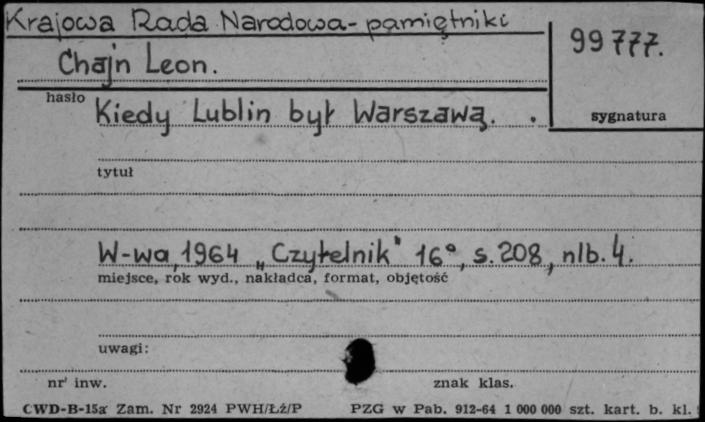 Krajowa Rada Narodowa - pamiętniki
99 777.
Chajn Leon.
hasło
Kiedy Lublin był Warszawą. .
sygnatura
tytuł
W-wa, 1964 „Czytelnik" 16°, s. 208, nlb. 4.
miejsce, rok wyd., nakładca, format, objętość
uwagi:
nr inw. znak klas.
CWD-B-15a Zam. Nr 2924 PWH/Łź/P PZG w Pab. 912-64 1 000 000 szt. kart. b. kl.